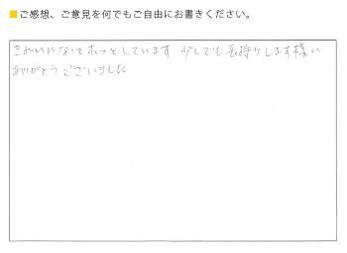 ■ご感想、ご意見を何でもご自由にお書きください。
きれいになってホッとしています 少しでも長持ちします様に
ありがとうございました